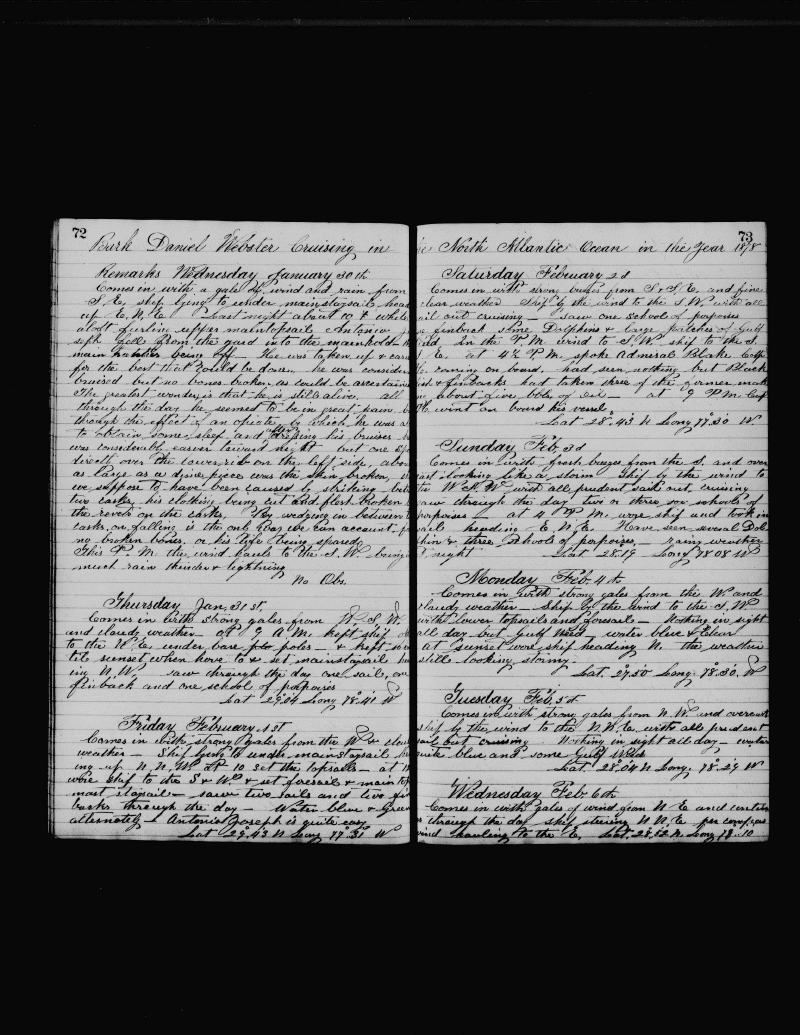 72
Bark Daniel Webster Cruising in
Remarks Wednesday January 30th
Comes in with a gale of wind and rain from
S. E. ship lying to under mainstaysail head
up E. N. E. Last night about 10 & while
aloft furling upper maintopsail Antonio
seph fell from the yard into the mainhold
main hatches being off. He was taken up & care
for the best that could be done, he was consider
bruised but no bones broken as could be ascertaine
The greatest wonder is that he is still alive. all
through the day he seemed to be in great pain
through the effect of an opiate by which he was a
to obtain some sleep and after dressing his bruises
was considerably easier toward night but one
direct over the lower rib on the left side, abou
as large as a dime piece was the skin broken,
we suppose to have been caused by striking bet
two casks, his clothing being cut and flesh broken
the rivets on the casks. By wedging in between
casks on falling is the only way we can account, f
no broken bones or his life being spared
This P. M. the wind hauls to the S. W. being
much rain thunder & lightning
No Obs.
Thursday Jan. 31st.
Comes in with strong gales from W. S. W.
and cloudy weather — at 9 A. M. kept ship
to the N. E. under bare poles — & kept
til sunset when hove to & set mainstaysail
ing N. W. saw through the day one sail, on
finback and one school of porpoises
Lat 29.04 Long 78.41 W
Friday February 1st
Comes in with strong gales from the W & clou
weather — Ship lying to under mainstaysail
ing up N. N. W. at 10 set the topsails — at
wore ship to the S & W & set foresail & main
mast staysail — saw two sails and two fin
backs through the day — Water blue & Green
alternately — Antonio Joseph is quite easy
Lat 29.43 N Long 77.31 W
73
North Atlantic Ocean in the Year 1878
Saturday February 2d
Comes in with strong breeze from S. S. E. and fine
clear weather Ship by the wind to the S. W. with all
sail out cruising — saw one school of porpoises
finback some Dolphins & large patches of Gulf
in the P. M. wind to S. W. ship to the S.
E. at 4½ P. M. spoke Admiral Blake Capt
coming on board, had seen nothing but Black
& finbacks had taken three of the former mak
about five bbls of oil — at 9 P. M. Capt
went on board his vessel.
Lat 28.43 N Long 77.50 W
Sunday Feb. 3d
Comes in with fresh breeze from the S. and over
cast looking like a storm Ship by the wind to
the W. S. W. with all prudent sail out, cruising
saw through the day two or three schools of
porpoises — at 4 P. M. wore ship and took in
sail heading E. N. E. Have seen several Dol
phin & three schools of porpoises, — rainy weather
night Lat 28.19 Long 78 08 W
Monday Feb. 4th
Comes in with strong gales from the W. and
cloudy weather — Ship by the wind to the S. W.
with lower topsails and foresail — Nothing in sight
all day but gulf weed, water blue & Clear
at sunset wore ship heading N. the weather
still looking stormy.
Lat. 27.50 Long. 78.30. W
Tuesday Feb. 5th
Comes in with strong gales from N. W. and overcast
ship by the wind to the N. N. E. with all prudent
sail out cruising. Nothing in sight all day — water
quite blue and some Gulf Weed
Lat. 28.04 N Long. 78.29 W
Wednesday Feb. 6th
Comes in with gales of wind from N E and
through the day ship steering N. N. E. per compass
wind hauling to the E. Lat. 28.52 N. Long 78.10